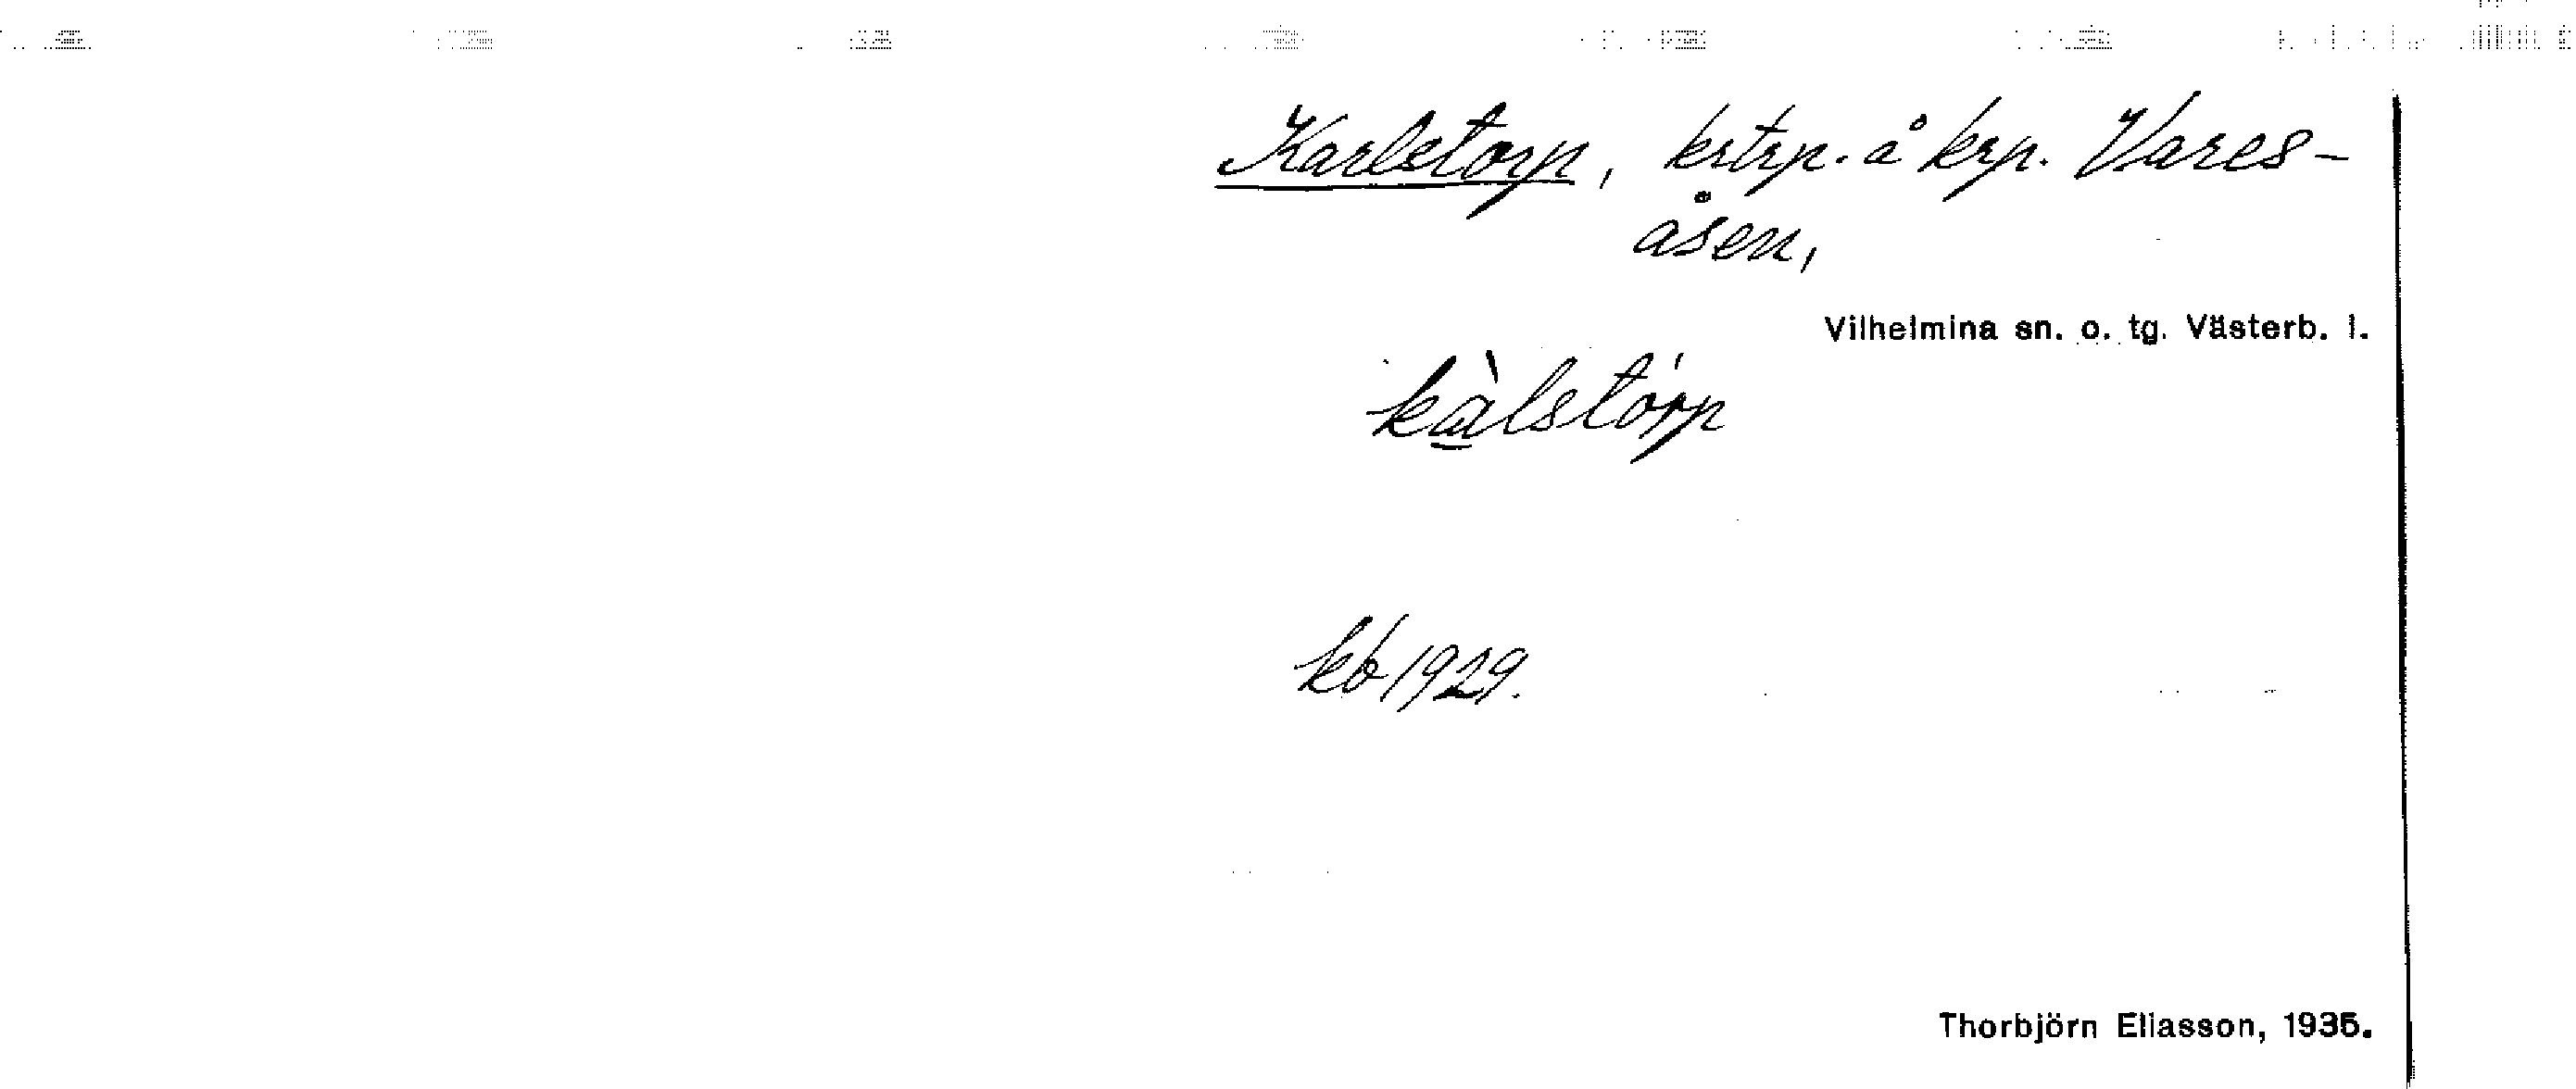 Karlstorp, krtrp. å krp. Vares-
åsen,
Vilhelmina sn. o. tg. Västerb. l.
kàlstórp
kb 1929.
Thorbjörn Eliasson, 1935.